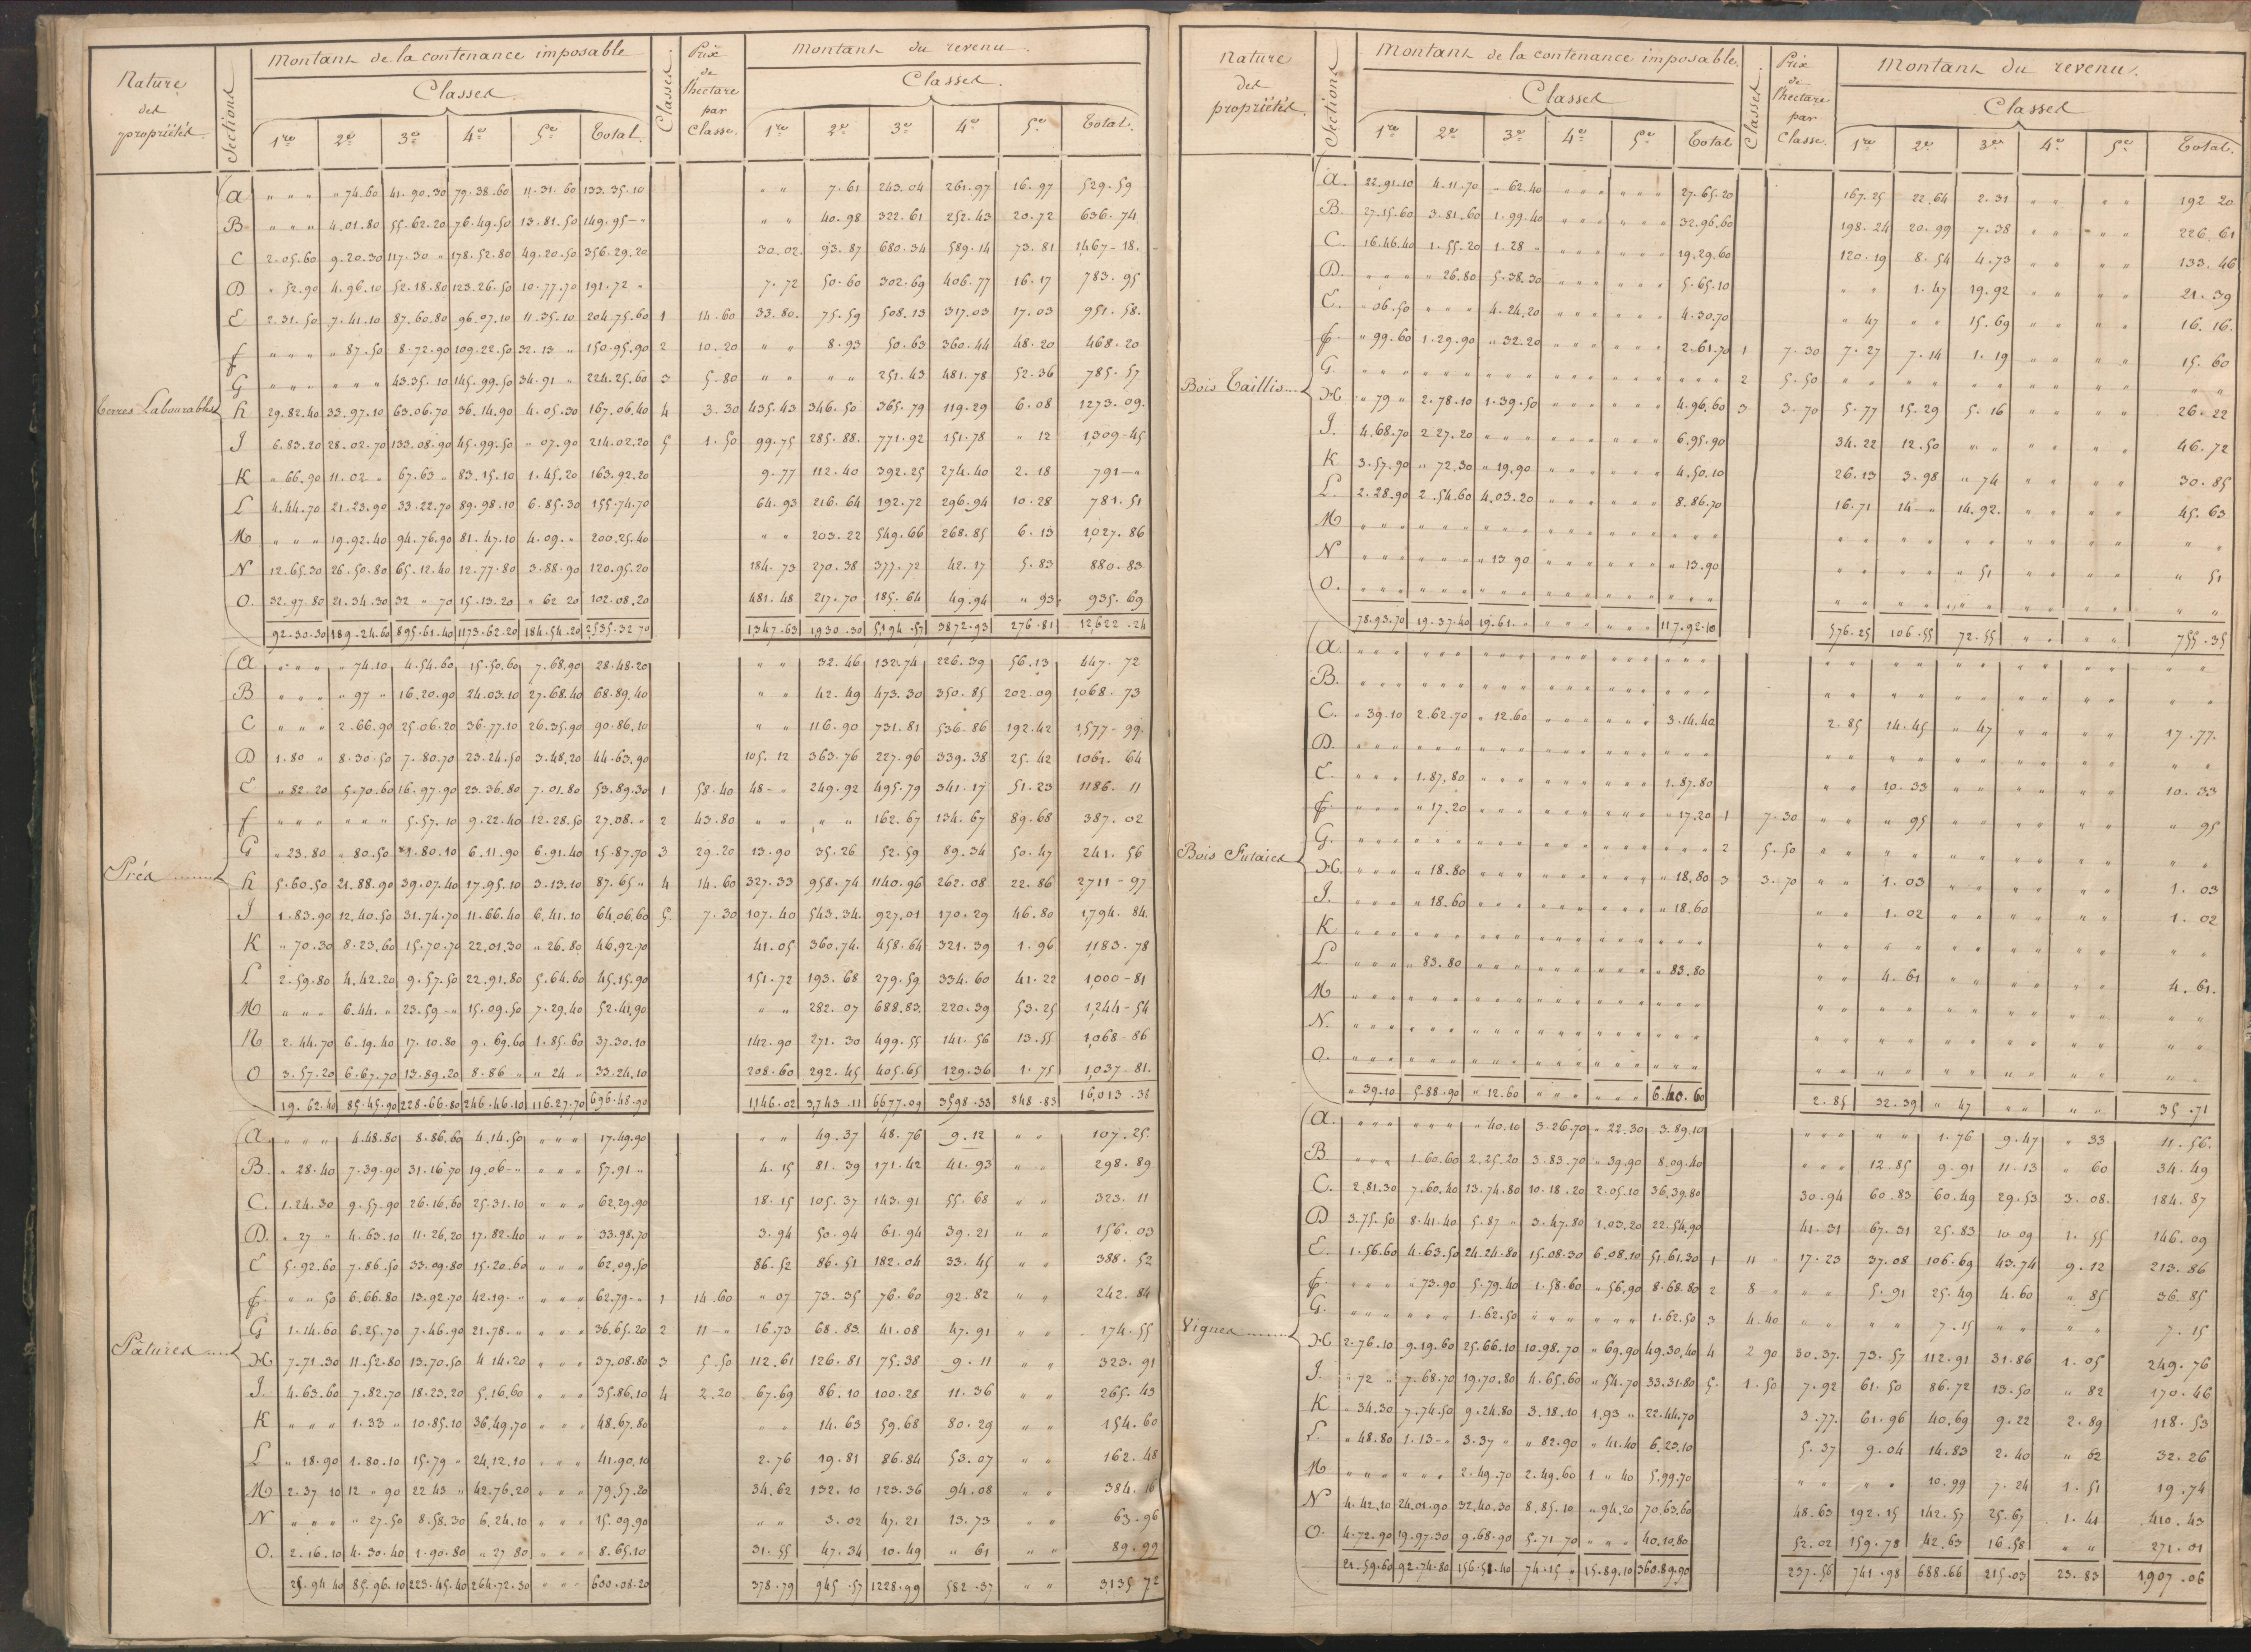 Nature des propriétés. Sections Montant de la contenance imposable Classes. Prix de l'hectare par Classe. Montant du revenu.
Classes. Classes.
1re 2e 3e 4e 5e Total. 1re 2e 3e 4e 5e Total.
A " " " " 74.60 41.90.30 79.38.60 11.31.60 133.35.10 " " 7.61 243.04 261.97 16.97 529.59
B " " " 4.01.80 55.62.20 76.49.50 13.81.50 149.95 — " " " 40.98 322.61 252.43 20.72 636.74
C 2.05.60 9.20.30 117.30 " 178.52.80 49.20.50 356.29.20 30.02 93.87 680.34 589.14 73.81 1,467-18.
D " 52.90 4.96.10 52.18.80 123.26.50 10.77.70 191.72 " 7.72 50.60 302.69 406.77 16.17 783.95
E 2.31.50 7.41.10 87.60.80 96.07.10 11.35.10 204.75.60 1 14.60 33.80. 75.59 508.13 317.03 17.03 951.58.
f " " " " 87.50 8.72.90 109.22.50 32.13 " 150.95.90 2 10.20 " " 8.93 50.63 360.44 48.20 468.20
G " " " " " " 43.35.10 145.99.50 34.91 " 224.25.60 3 5.80 " " " " 251.43 481.78 52.36 785.57
Terres Labourables h 29.82.40 33.97.10 63.06.70 36.14.90 4.05.30 167.06.40 4 3.30 435.43 346.50 365.79 119.29 6.08 1273.09.
J 6.83.20 28.02.70 133.08.90 45.99.50 " 07.90 214.02.20 5 1.50 99.75 285.88. 771.92 151.78 " 12 1,309-45
K " 66.90 11.02 " 67.63 " 83.15.10 1.45.20 163.92.20 9.77 112.40 392.25 274.40 2.18 791 — "
L 4.44.70 21.23.90 33.22.70 89.98.10 6.85.30 155.74.70 64.93 216.64 192.72 296.94 10.28 781.51
M " " " 19.92.40 94.76.90 81.47.10 4.09. " 200.25.40 " " 203.22 549.66 268.85 6.13 1,027.86
N 12.65.30 26.50.80 65.12.40 12.77.80 3.88.90 120.95.20 184.73 270.38 377.72 42.17 5.83 880.83
O. 32.97.80 21.34.30 32 " 70 15.13.20 " 62 20 102.08.20 481.48 217.70 185.64 49.94 " 93 935.69
92.30.30 189.24.60 895.61.40 1173.62.20 184.54.20 2,535.32 70 1,347.63 1,930.30 5,194.57 3872.93 276.81 12,622.24
A " " " " 74.10 4.54.60 15.50.60 7.68.90 28.48.20 " " 32.46 132.74 226.39 56.13 447.72
B " " " " 97 " 16.20.90 24.03.10 27.68.40 68.89.40 " " 42.49 473.30 350.85 202.09 1,068.73
C " " " 2.66.90 25.06.20 36.77.10 26.35.90 90.86.10 " " 116.90 731.81 536.86 192.42 1,577-99.
D 1.80 " 8.30.50 7.80.70 23.24.50 3.48.20 44.63.90 105.12 363.76 227.96 339.38 25.42 1061.64
E " 82 20 5.70.60 16.97.90 23.36.80 7.01.80 53.89.30 1 58.40 48 — " 249.92 495.79 341.17 51.23 1186.11
f " " " " " " 5.57.10 9.22.40 12.28.50 27.08. " 2 43.80 " " " " 162.67 134.67 89.68 387.02
G " 23.80 " 80.50 1.80.10 6.11.90 6.91.40 15.87.70 3 29.20 13.90 35.26 52.59 89.34 50.47 241.56
Prés h 5.60.50 21.88.90 39.07.40 17.95.10 3.13.10 87.65 " 4 14.60 327.33 958.74 1140.96 262.08 22.86 2,711-97
J 1.83.90 12.40.50 31.74.70 11.66.40 6.41.10 64.06.60 5. 7.30 107.40 543.34. 927.01 170.29 46.80 1,794.84.
K " 70.30 8.23.60 15.70.70 22.01.30 " 26.80 46.92.70 41.05 360.74. 458.64 321.39 1.96 1,183.78
L 2.59.80 4.42.20 9.57.50 22.91.80 5.64.60 45.15.90 151.72 193.68 279.59 334.60 41.22 1,000-81
M " " " 6.44. " 23.59 — " 15.09.50 7.29.40 52.41.90 " " 282.07 688.83. 220.39 53.25 1,244-54
N 2.44.70 6.19.40 17.10.80 9.69.60 1.85.60 37.30.10 142.90 271.30 499.55 141.56 13.55 1,068-86
O 3.57.20 6.67.70 13.89.20 8.86 " " 24 " 33.24.10 208.60 292.45 405.65 129.36 1.75 1,037-81.
19.62.40 85.45.90 228.66.80 246.46.10 116.27.70 696.48.90 1,146.02 3,743.11 6,677.09 3598.33 848.83 16,013.38
A. " " " 4.48.80 8.86.60 4.14.50 " " " 17.49.90 " " 49.37 48.76 9.12 " " 107.25.
B. " 28.40 7.39.90 31.16.70 19.06 — " " " " 57.91 " 4.15 81.39 171.42 41.93 " " 298.89
C. 1.24.30 9.57.90 26.16.60 25.31.10 " " " 62.29.90 18.15 105.37 143.91 55.68 " " 323.11
D. " 27 " 4.63.10 11.26.20 17.82.40 " " " 33.98.70 3.94 50.94 61.94 39.21 " " 156.03
E 5.92.60 7.86.50 33.09.80 15.20.60 " " " 62.09.50 86.52 86.51 182.04 33.45 " " 388.52
f. " " 50 6.66.80 13.92.70 42.19. " " " " 62.79 — " 1 14.60 " 07 73.35 76.60 92.82 " " 242.84
G 1.14.60 6.25.70 7.46.90 21.78. " " " " 36.65.20 2 11 — " 16.73 68.83 41.08 47.91 " " 174.55
Pâtures H 7.71.30 11.52.80 13.70.50 4.14.20 " " " 37.08.80 3 5.50 112.61 126.81 75.38 9.11 " " 323.91
J. 4.63.60 7.82.70 18.23.20 5.16.60 " " " 35.86.10 4 2.20 67.69 86.10 100.28 11.36 " " 265.43
K " " " 1.33 " 10.85.10 36.49.70 " " " 48.67.80 " " 14.63 59.68 80.29 " " 154.60
L " 18.90 1.80.10 15.79 " 24.12.10 " " " 41.90.10 2.76 19.81 86.84 53.07 " " 162.48
M 2.37 10 12 " 90 22 43 " 42.76.20 " " " 79.57.20 34.62 132.10 123.36 94.08 " " 384.16
N " " " " 27.50 8.58.30 6.24.10 " " " 15.09.90 " " 3.02 47.21 13.73 " " 63-96
O. 2.16.10 4.30.40 1.90.80 " 27 80 " " " 8.65.10 31.55 47.34 10.49 " 61 " " 89.99
25.94 40 85.96.10 223.45.40 264.72.30 " " " 600.08.20 378.79 945.57 1228.99 582.37 " " 3135 72
Nature des propriétés. Sections Montant de la contenance imposable. Classes. Prix de l'hectare par Classe. Montant du revenu.
Classes Classes
1re 2e 3e 4e 5e Total 1re 2e 3e 4e 5e Total.
A. 22.91.10 4.11.70 " 62.40 " " " " " " 27.65.20 167.25 22.64 2.31 " " " " 192 20
B. 27.15.60 3.81.60 1.99.40 " " " " " " 32.96.60 198.24 20.99 7.38 " " " " 226.61
C. 16.46.40 1.55.20 1.28 " " " " " " " 19.29.60 120.19 8.54 4.73 " " " " 133.46
D. " " " " 26.80 5.38.30 " " " " " " 5.65.10 " " 1.47 19.92 " " " " 21.39
E. " 06.50 " " " 4.24.20 " " " " " " 4.30.70 " 47 " " 15.69 " " " " 16.16.
f. " 99.60 1.29.90 " 32.20 " " " " " " 2.61.70 1 7.30 7.27 7.14 1.19 " " " " 15.60
G. " " " " " " " " " " " " " " " " " " 2 5.50 " " " " " " " " " " " "
Bois Taillis H " 79 " 2.78.10 1.39.50 " " " " " " 4.96.60 3 3.70 5.77 15.29 5.16 " " " " 26.22
J. 4.68.70 2 27.20 " " " " " " " " " 6.95.90 34.22 12.50 " " " " " " 46.72
K 3.57.90 " 72.30 " 19.90 " " " " " " 4.50.10 26.13 3.98 " 74 " " " " 30.85
L. 2.28.90 2.54.60 4.03.20 " " " " " " 8.86.70 16.71 14 — " 14.92. " " " " 45.63
M " " " " " " " " " " " " " " " " " " " " " " " " " " " " " "
N " " " " " " " 13 90 " " " " " " " 13.90 " " " " " 51 " " " " " 51
O. " " " " " " " " " " " " " " " " " " " " " " " " " " " " " "
78.93.70 19.37.40 19.61. " " " " " " " 117.92.10 576.25 106.55 72.55 " " " " 755.35
A. " " " " " " " " " " " " " " " " " " " " " " " " " " " " " "
B. " " " " " " " " " " " " " " " " " " " " " " " " " " " " " "
C. " 39.10 2.62.70 " 12.60 " " " " " " 3.14.40 2.85 14.45 " 47 " " " " 17.77.
D. " " " " " " " " " " " " " " " " " " " " " " " " " " " " " "
E. " " " 1.87.80 " " " " " " " " " 1.87.80 " " 10.33 " " " " " " 10.33
f. " " " " 17.20 " " " " " " " " " " 17.20 1 7.30 " " " 95 " " " " " " " 95
G. " " " " " " " " " " " " " " " " " " 2 5.50 " " " " " " " " " " " "
Bois Futaies H. " " " " 18.80 " " " " " " " " " " 18.80 3 3.70 " " 1.03 " " " " " " 1.03
J. " " " " 18.60 " " " " " " " " " " 18.60 " " 1.02 " " " " " " 1.02
K " " " " " " " " " " " " " " " " " " " " " " " " " " " " " "
L. " " " " 83.80 " " " " " " " " " " 83.80 " " 4.61 " " " " " " 4.61.
M " " " " " " " " " " " " " " " " " " " " " " " " " " " " " "
N. " " " " " " " " " " " " " " " " " " " " " " " " " " " " " "
O. " " " " " " " " " " " " " " " " " " " " " " " " " " " " " "
" 39.10 5.88.90 " 12.60 " " " " " " 6.40.60 2.85 32.39 " 47 " " " " 35.71
A. " " " " " " " 40.10 3.26.70 " 22.30 3.89.10 " " " " 1.76 9.47 " 33 11.56.
B " " " 1.60.60 2.25.20 3.83.70 " 39.90 8.09.40 " " 12.85 9.91 11.13 " 60 34.49
C. 2.81.30 7.60.40 13.74.80 10.18.20 2.05.10 36.39.80 30.94 60.83 60.49 29.53 3.08. 184.87
D 3.75.50 8.41.40 5.87 " 3.47.80 1.03.20 22.54.90 41.31 67.31 25.83 10 09 1.55 146.09
E. 1.56.60 4.63.50 24.24.80 15.08.30 6.08.10 51.61.30 1 11 " 17.23 37.08 106.69 43.74 9.12 213.86
f. " " " " 73.90 5.79.40 1.58.60 " 56.90 8.68.80 2 8 " " " 5.91 25.49 4.60 " 85 36.85
G. " " " " " " 1.62.50 " " " " " " 1.62.50 3 4.40 " " " " 7.15 " " " " 7.15
Vignes H 2.76.10 9.19.60 25.66.10 10.98.70 " 69.90 49.30.40 4 2 90 30.37. 73.57 112.91 31.86 1.05 249.76
J. " 72 " 7.68.70 19.70.80 4.65.60 " 54.70 33.31.80 5. 1.50 7.92 61.50 86.72 13.50 " 82 170.46
K " 34.30 7.74.50 9.24.80 3.18.10 1.93 " 22.44.70 3.77. 61.96 40.69 9.22 2.89 118.53
L. " 48.80 1.13 - " 3.37 " " 82.90 " 41.40 6.23.10 5.37 9.04 14.83 2.40 " 62 32.26
M " " " " " " 2.49.70 2.49.60 1 " 40 5.99.70 " " " " 10.99 7.24 1.51 19.74
N 4.42.10 24.01.90 32.40.30 8.85.10 " 94.20 70.63.60 48.63 192.15 142.57 25.67 1.41 410.43
O. 4.72.90 19.97.30 9.68.90 5.71 70 " " " 40.10.80 52.02 159.78 42.63 16.58 " " 271.01
21.59.60 92.74.80 156.51.40 74.15 " 15.89.10 360.89.90 237.56 741.98 688.66 215.03 23.83 1,907.06